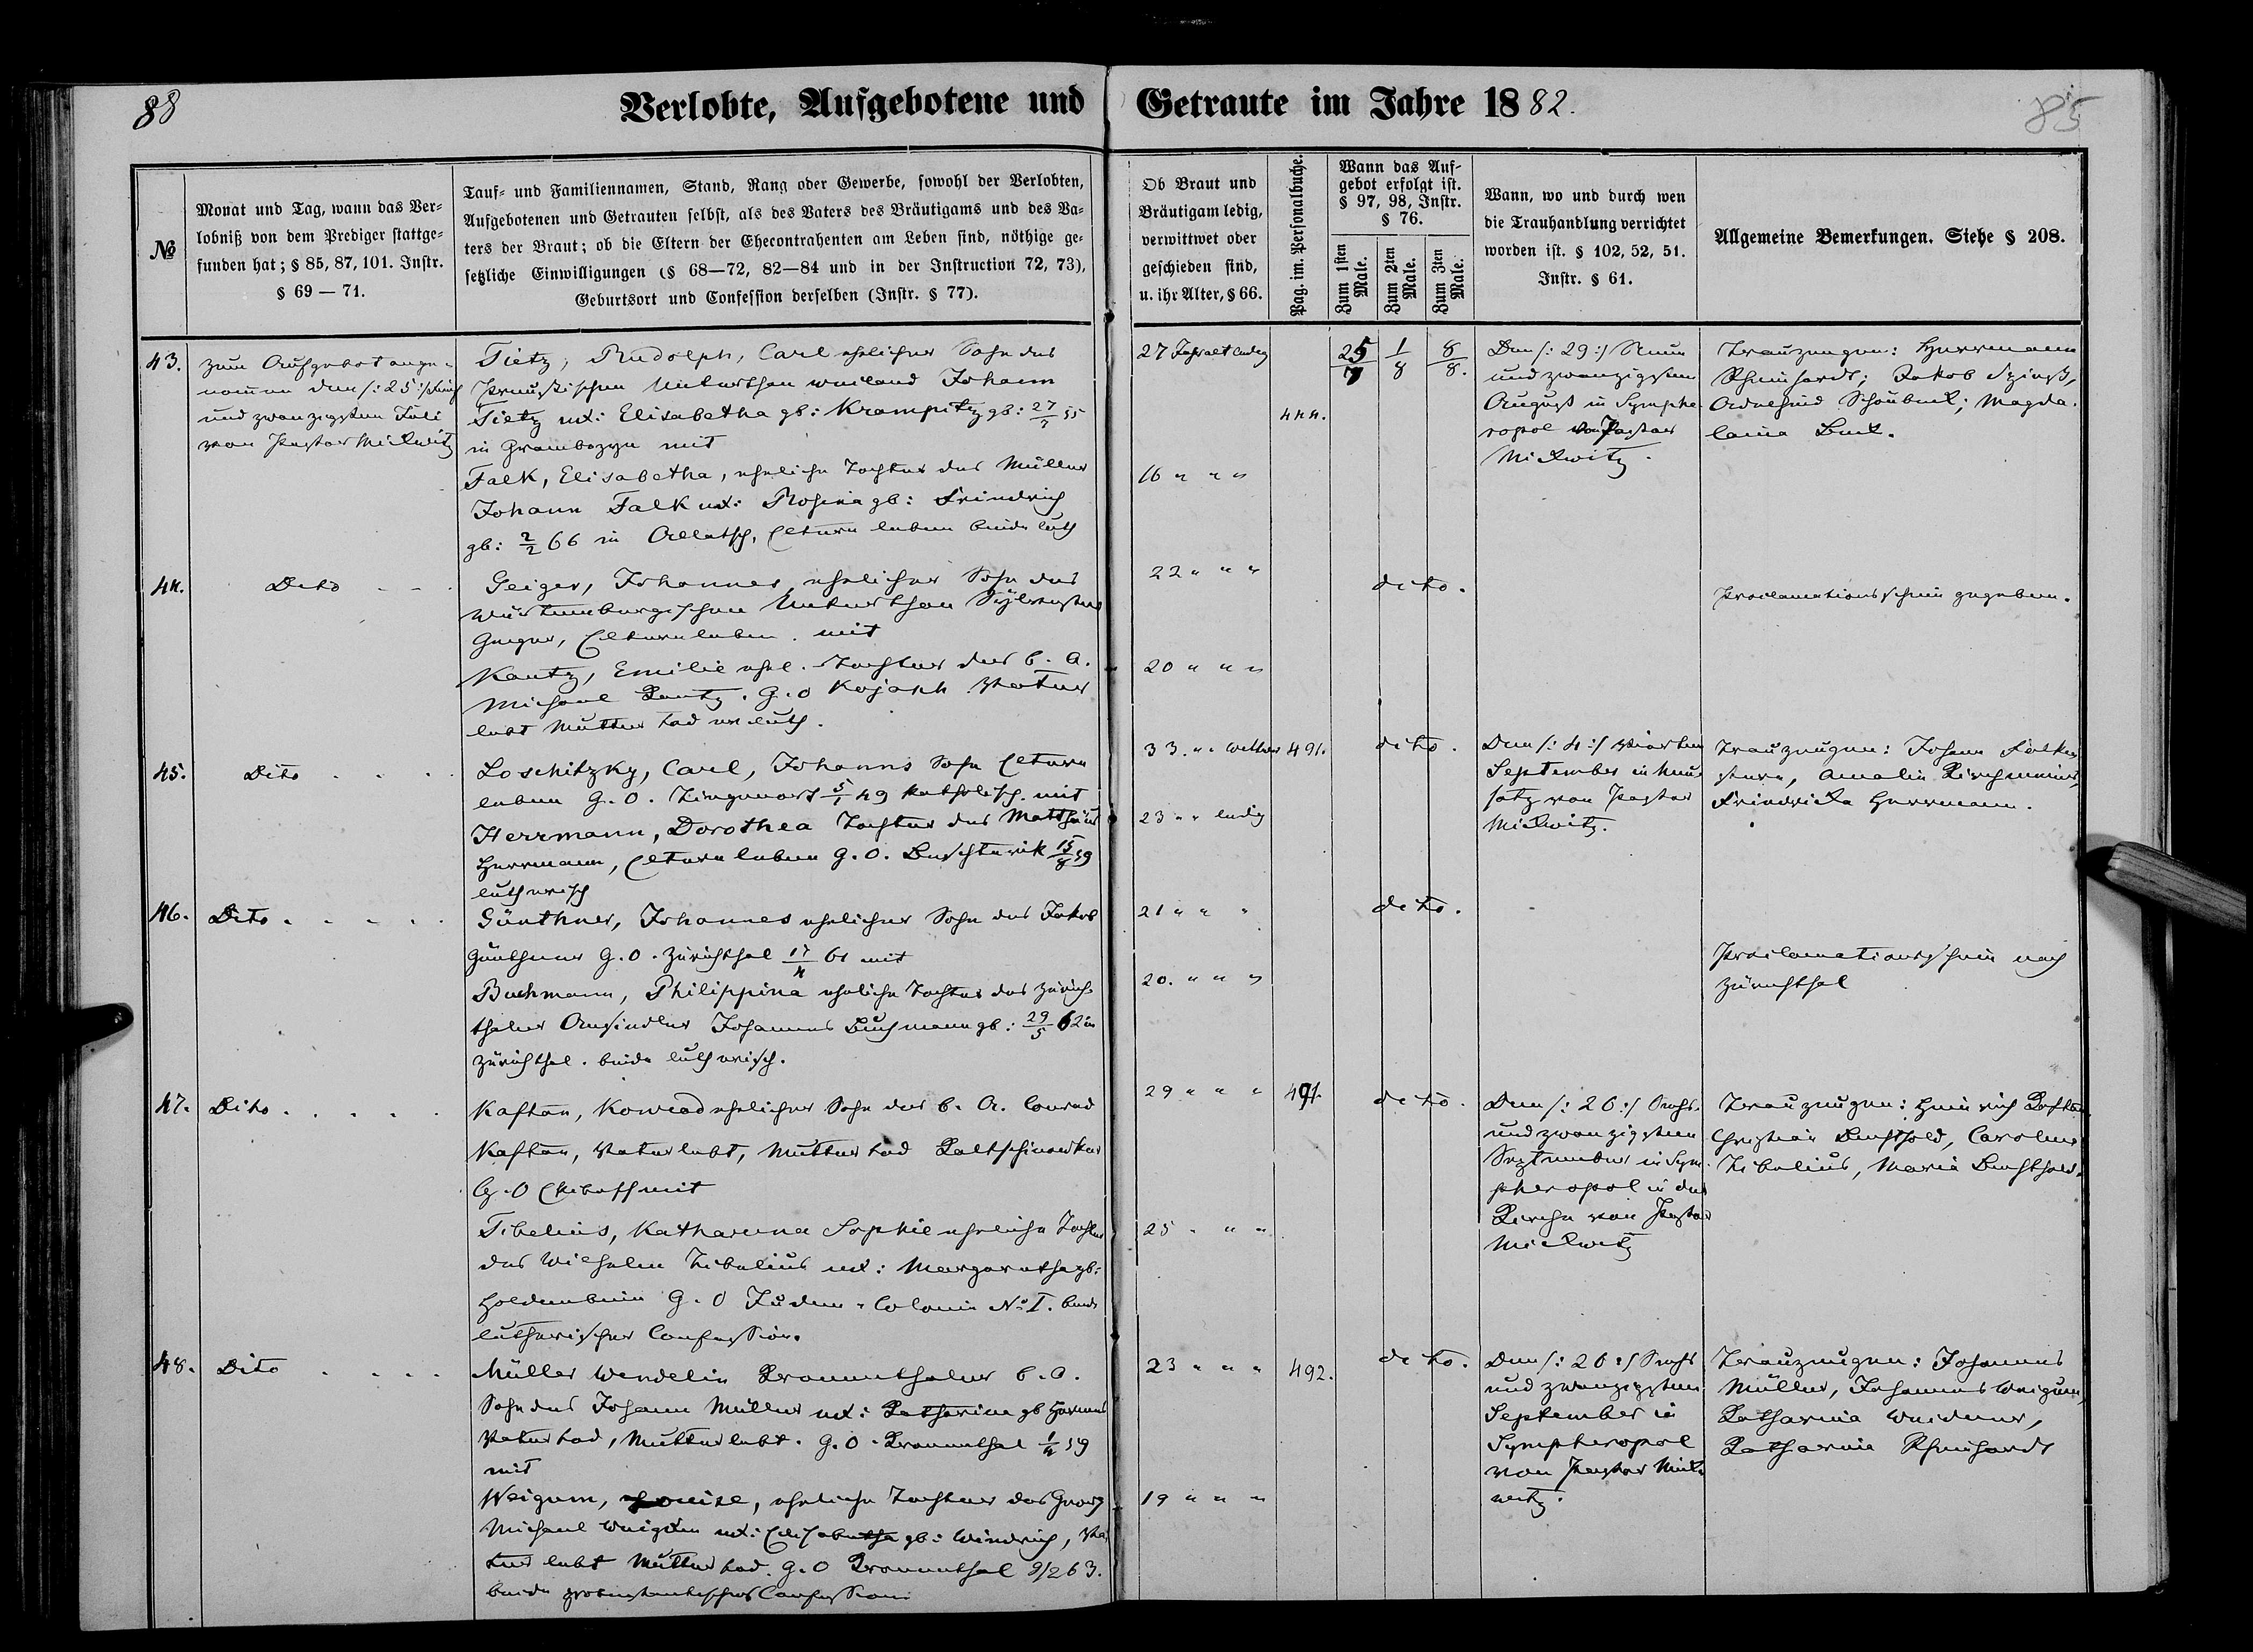 88
Verlobte, Aufgebotene und Getraute im Jahre 1882.
85
№
Monat und Tag, wann das Ver-
lobniß von dem Prediger stattge-
funden hat; § 85, 87, 101. Instr.
§ 69 — 71.
Tauf- und Familiennamen, Stand, Rang oder Gewerbe, sowohl der Verlobten,
Aufgebotenen und Getrauten selbst, als des Vaters des Bräutigams und des Va-
ters der Braut; ob die Eltern der Ehecontrahenten am Leben sind, nöthige ge-
setzliche Einwilligungen (§ 68—72, 82—84 und in der Instruction 72, 73),
Geburtsort und Confession derselben (Instr. § 77).
Ob Braut und
Bräutigam ledig,
verwittwet oder
geschieden sind,
u. ihr Alter, § 66.
Pag. im. Personalbuche.
Wann das Auf-
gebot erfolgt ist.
§ 97, 98, Instr.
§ 76.
Zum 1sten Male.
Zum 2ten Male.
Zum 3ten Male.
Wann, wo und durch wen
die Trauhandlung verrichtet
worden ist. § 102, 52, 51.
Instr. § 61.
Allgemeine Bemerkungen. Siehe § 208.
43.
zum Aufgebot ange-
nomen den /: 25 :/ fünf
und zwanzigsten Juli
von Pastor Mickwitz
Tietz, Rudolph, Carl ehelicher Sohn des
Preußischen Unterthan weiland Johann
Tietz ux: Elisabetha gb: Krampitz gb: 27/7 55
in mit
Falk, Elisabetha, eheliche Tochter des Müller
Johann Falk ux: Rosina gb: Friedrich
gb: 2/2 66 in Eltern leben beide luth
27 Jahr alt ledig
16 " " "
444.
25/7 1/8 8/8.
Den /: 29 :/ Neun
und zwanzigsten
August in Symphe-
ropol von Pastor
Mickwitz.
Trauzeugen: Herrmann
Rheinhardt; Jakob
Magda-
lena Beck.
44.
Dito - - -
Geiger, Johannes, ehelicher Sohn des
Würtembergischen Unterthan Sylvester
Geiger, Eltern leben. mit
Kautz, Emilie ehel. Tochter des b. A.
Michael Kautz. G. O Kojasch Vater
lebt Mutter tod ev luth.
22 " " "
20 " " "
dito.
Proclamationsschein gegeben.
45.
Dito . . . .
Loschitzky, Carl, Johanns Sohn Eltern
leben G. O. 5/1 49 katholisch. mit
Herrmann, Dorothea Tochter des Matthäus
Herrmann, Eltern leben G. O. Buschterik 15/8 59
lutherisch
33. " " Wittwer
23 " " ledig
491.
dito.
Den /: 4 :/ Vierten
September in Neu
satz von Pastor
Mickwitz.
Trauzeugen: Johann
Amalie Kirchmeier,
Friedricka Herrmann.
46.
Dito . . . . .
Günthner, Johannes ehelicher Sohn des Jakob
Günthner G. O. Zürichthal 17/4 61 mit
Buchmann, Philippina eheliche Tochter des Zürich-
thaler Ansiedler Johannes Buchmann gb: 29/5 62 in
Zürichthal. beide lutherisch.
21 " " "
20. " " "
dito.
Proclamationsschein nach
Zürichthal
47.
Dito . . . . .
Kaftan, Konrad ehelicher Sohn des b. A. Conrad
Kaftan, Vater lebt, Mutter tod
G. O mit
Tibelius, Katharina Sophie eheliche Tochter
des Wilhelm Tibelius ux: Margaretha gb:
Holdenbein G. O Juden-Colonie № I. beide
lutherischer Confession.
29 " " "
25 " " "
491.
dito.
Den /: 26 :/ Sechs-
und zwanzigsten
September in Sym-
pheropol in der
Kirche von Pastor
Mickwitz
Trauzeugen: Heinrich Kaftan
Christian Berthold, Caroline
Tibelius, Maria Berthold.
48.
Dito . . . .
Müller Wendelin Kronenthaler b. A.
Sohn des Johann Müller ux: Katharina gb
Vater tod, Mutter lebt. G. O. Kronenthal 1/4 59
mit
Weigum, Louise, eheliche Tochter des Georg
Michael Weigum ux: Elisabetha gb: Windrich, Va-
ter lebt Mutter tod. G. O Kronenthal 9/2 63.
beide protestantischer Confession
23 " " "
19 " " "
492.
dito.
Den /: 26 :/ Sechs
und zwanzigsten
September in
Sympheropol
von Pastor Mick-
witz.
Trauzeugen: Johannes
Müller, Johannes Weigum,
Katharina Weidner,
Katharina Rheinhardt